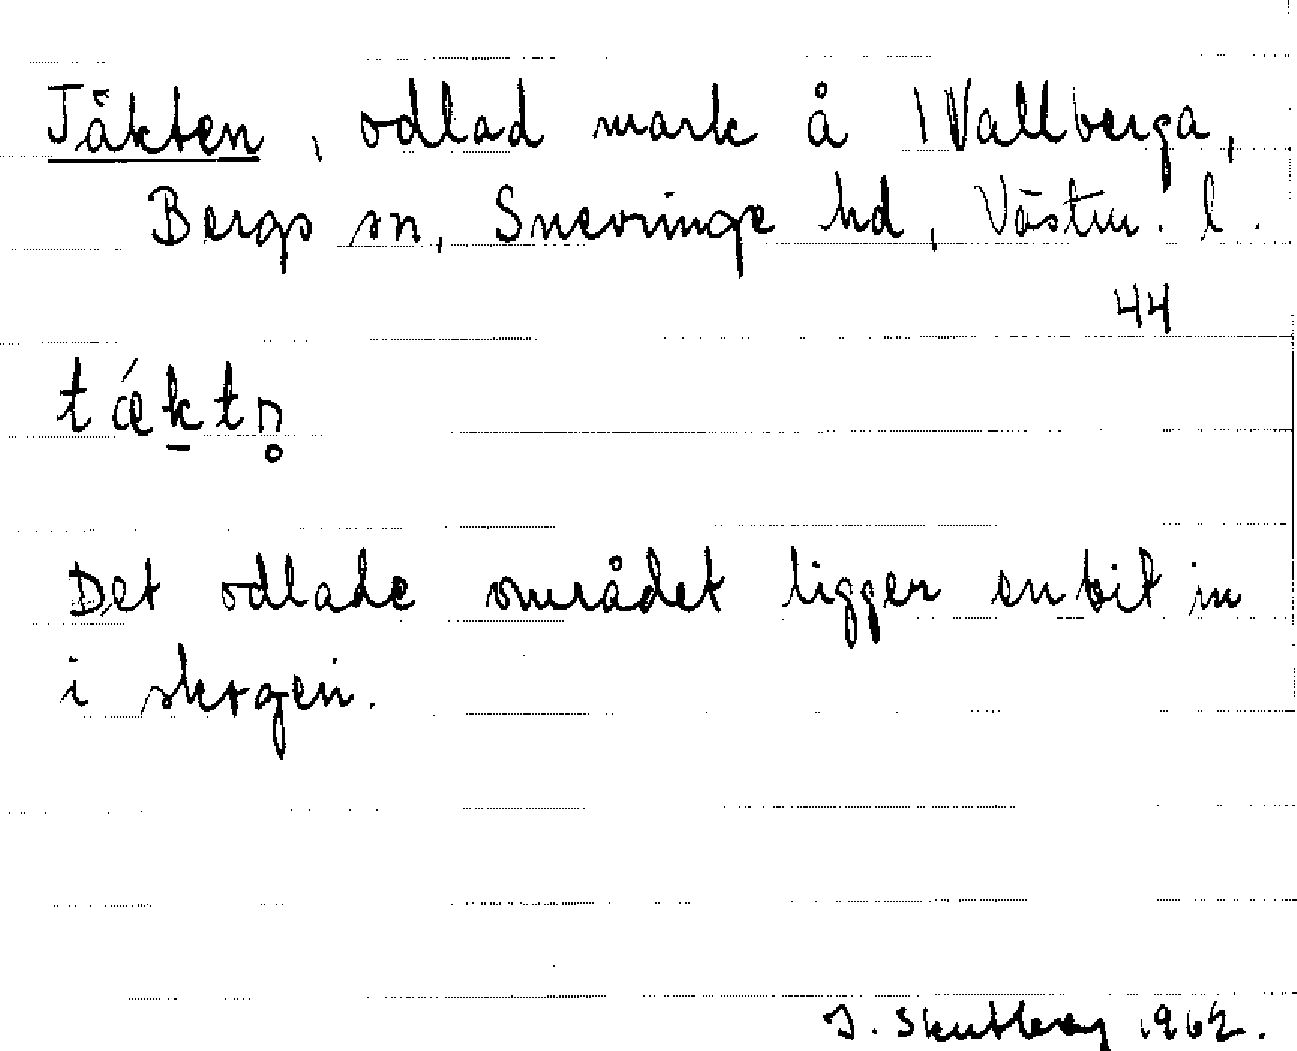 Täkten, odlad mark å 1 Vallberga,
Bergs sn, Snevringe hd, Västm. l.
44
tǽktn̥
Det odlade området ligger en bit in
i skogen.
J. Skutberg 1962.